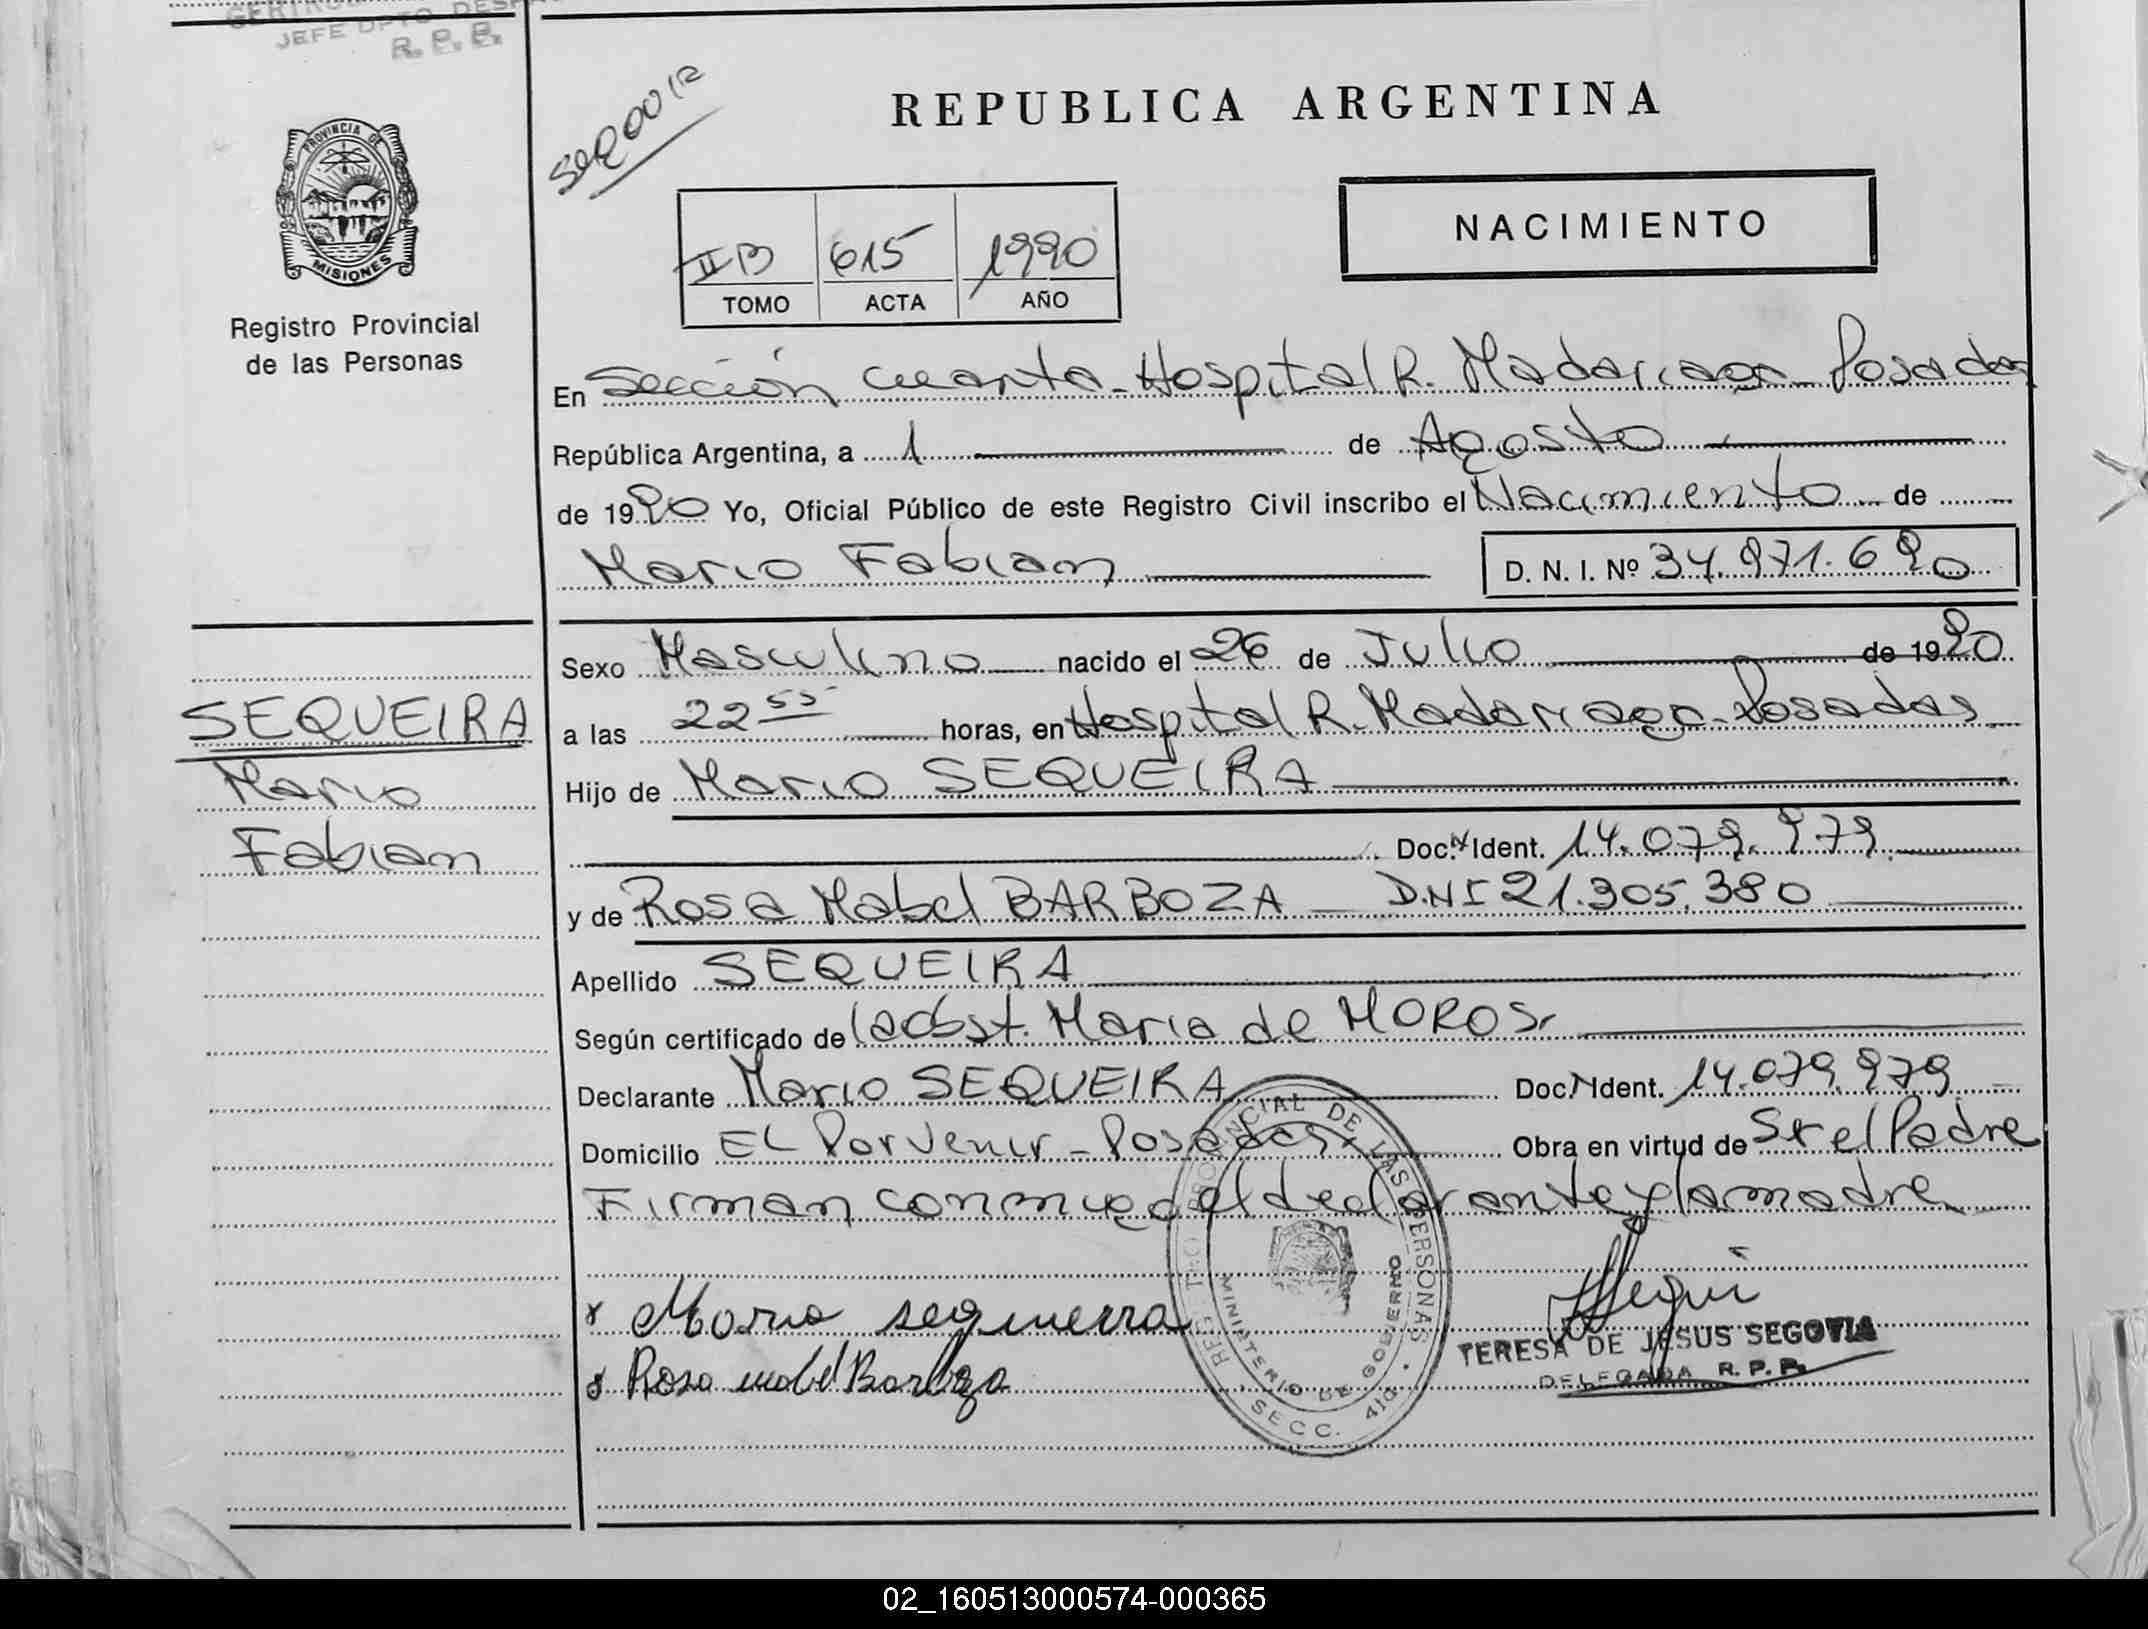 JEFE DPTO DESP
R. P. P.
PROVINCIA DE
MISIONES
Registro Provincial
de las Personas
REPUBLICA ARGENTINA
NACIMIENTO
II B 615 1990
TOMO ACTA AÑO
En Sección cuarta - Hospital R. Madariaga - Posadas
República Argentina, a 1 de Agosto
de 1990 Yo, Oficial Público de este Registro Civil inscribo el Nacimiento de
Mario Fabian D. N. I. Nº 34.971.690
Sexo Masculino nacido el 26 de Julio de 1990
SEQUEIRA
Mario
Fabian
a las 22 55 horas, en Hospital R. Madariaga - Posadas
Hijo de Mario SEQUEIRA
Doc. Ident. 14.079.979
y de Rosa Mabel BARBOZA D.N.I 21.305.380
Apellido SEQUEIRA
Según certificado de la obst. Maria de MOROS
Declarante Mario SEQUEIRA Doc. Ident. 14.079.979
Domicilio EL Porvenir - Posadas Obra en virtud de Sr el Padre
Firman conmigo el declarante y la madre
Mario sequeira
Rosa mabel Barboza
REGISTRO PROVINCIAL DE LAS PERSONAS
MINISTERIO DE GOBIERNO
SECC. 4ta.
TERESA DE JESUS SEGOVIA
DELEGADA R. P. P.
02_160513000574-000365